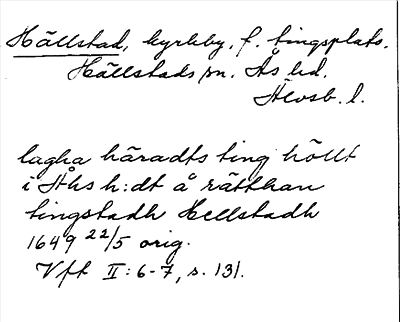 Hällstad, kyrkby, f. tingsplats.
Hällstads sn. Ås hd.
Älvsb. l.
lagha häradts ting höllt
i Åhs h:dt å rätthan
tingstadh Hellstadh
1649 22/5 orig.
Vft II: 6-7, s. 131.